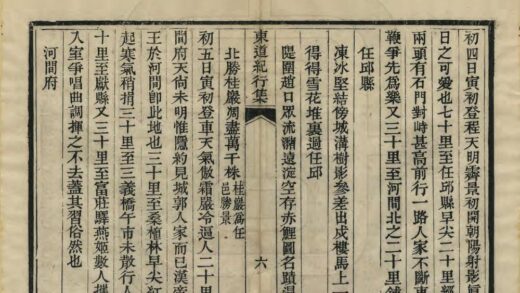 初四日寅初登程天明霽景初開朝陽射影
日之可愛也七十里至任邱縣早尖二十里
兩頭有石門對峙甚高前行一路人家不斷
鞭爭先為樂又三十里至河間北之二十里鋪
任邱縣
凍冰堅結傍城溝樹影參差出戍樓馬上
得得雪花堆裏過任邱
隄圍趙口眾流瀦遠淀空存赤鯉圖名蹟
東道紀行集
六
北勝桂巖周盡萬千株桂巖為任邑勝景
初五日寅初登車天氣傲霜嚴冷逼人二十里
間府天尚未明惟隱約見城郭人家而已漢
王於河間卽此地也三十里至桑橦林早尖
起寒氣稍捐三十里至三義橋午市未散行人
十里至獻縣又三十里至富莊驛燕姬數人
入室爭唱曲調揮之不去蓋其習俗然也
河間府